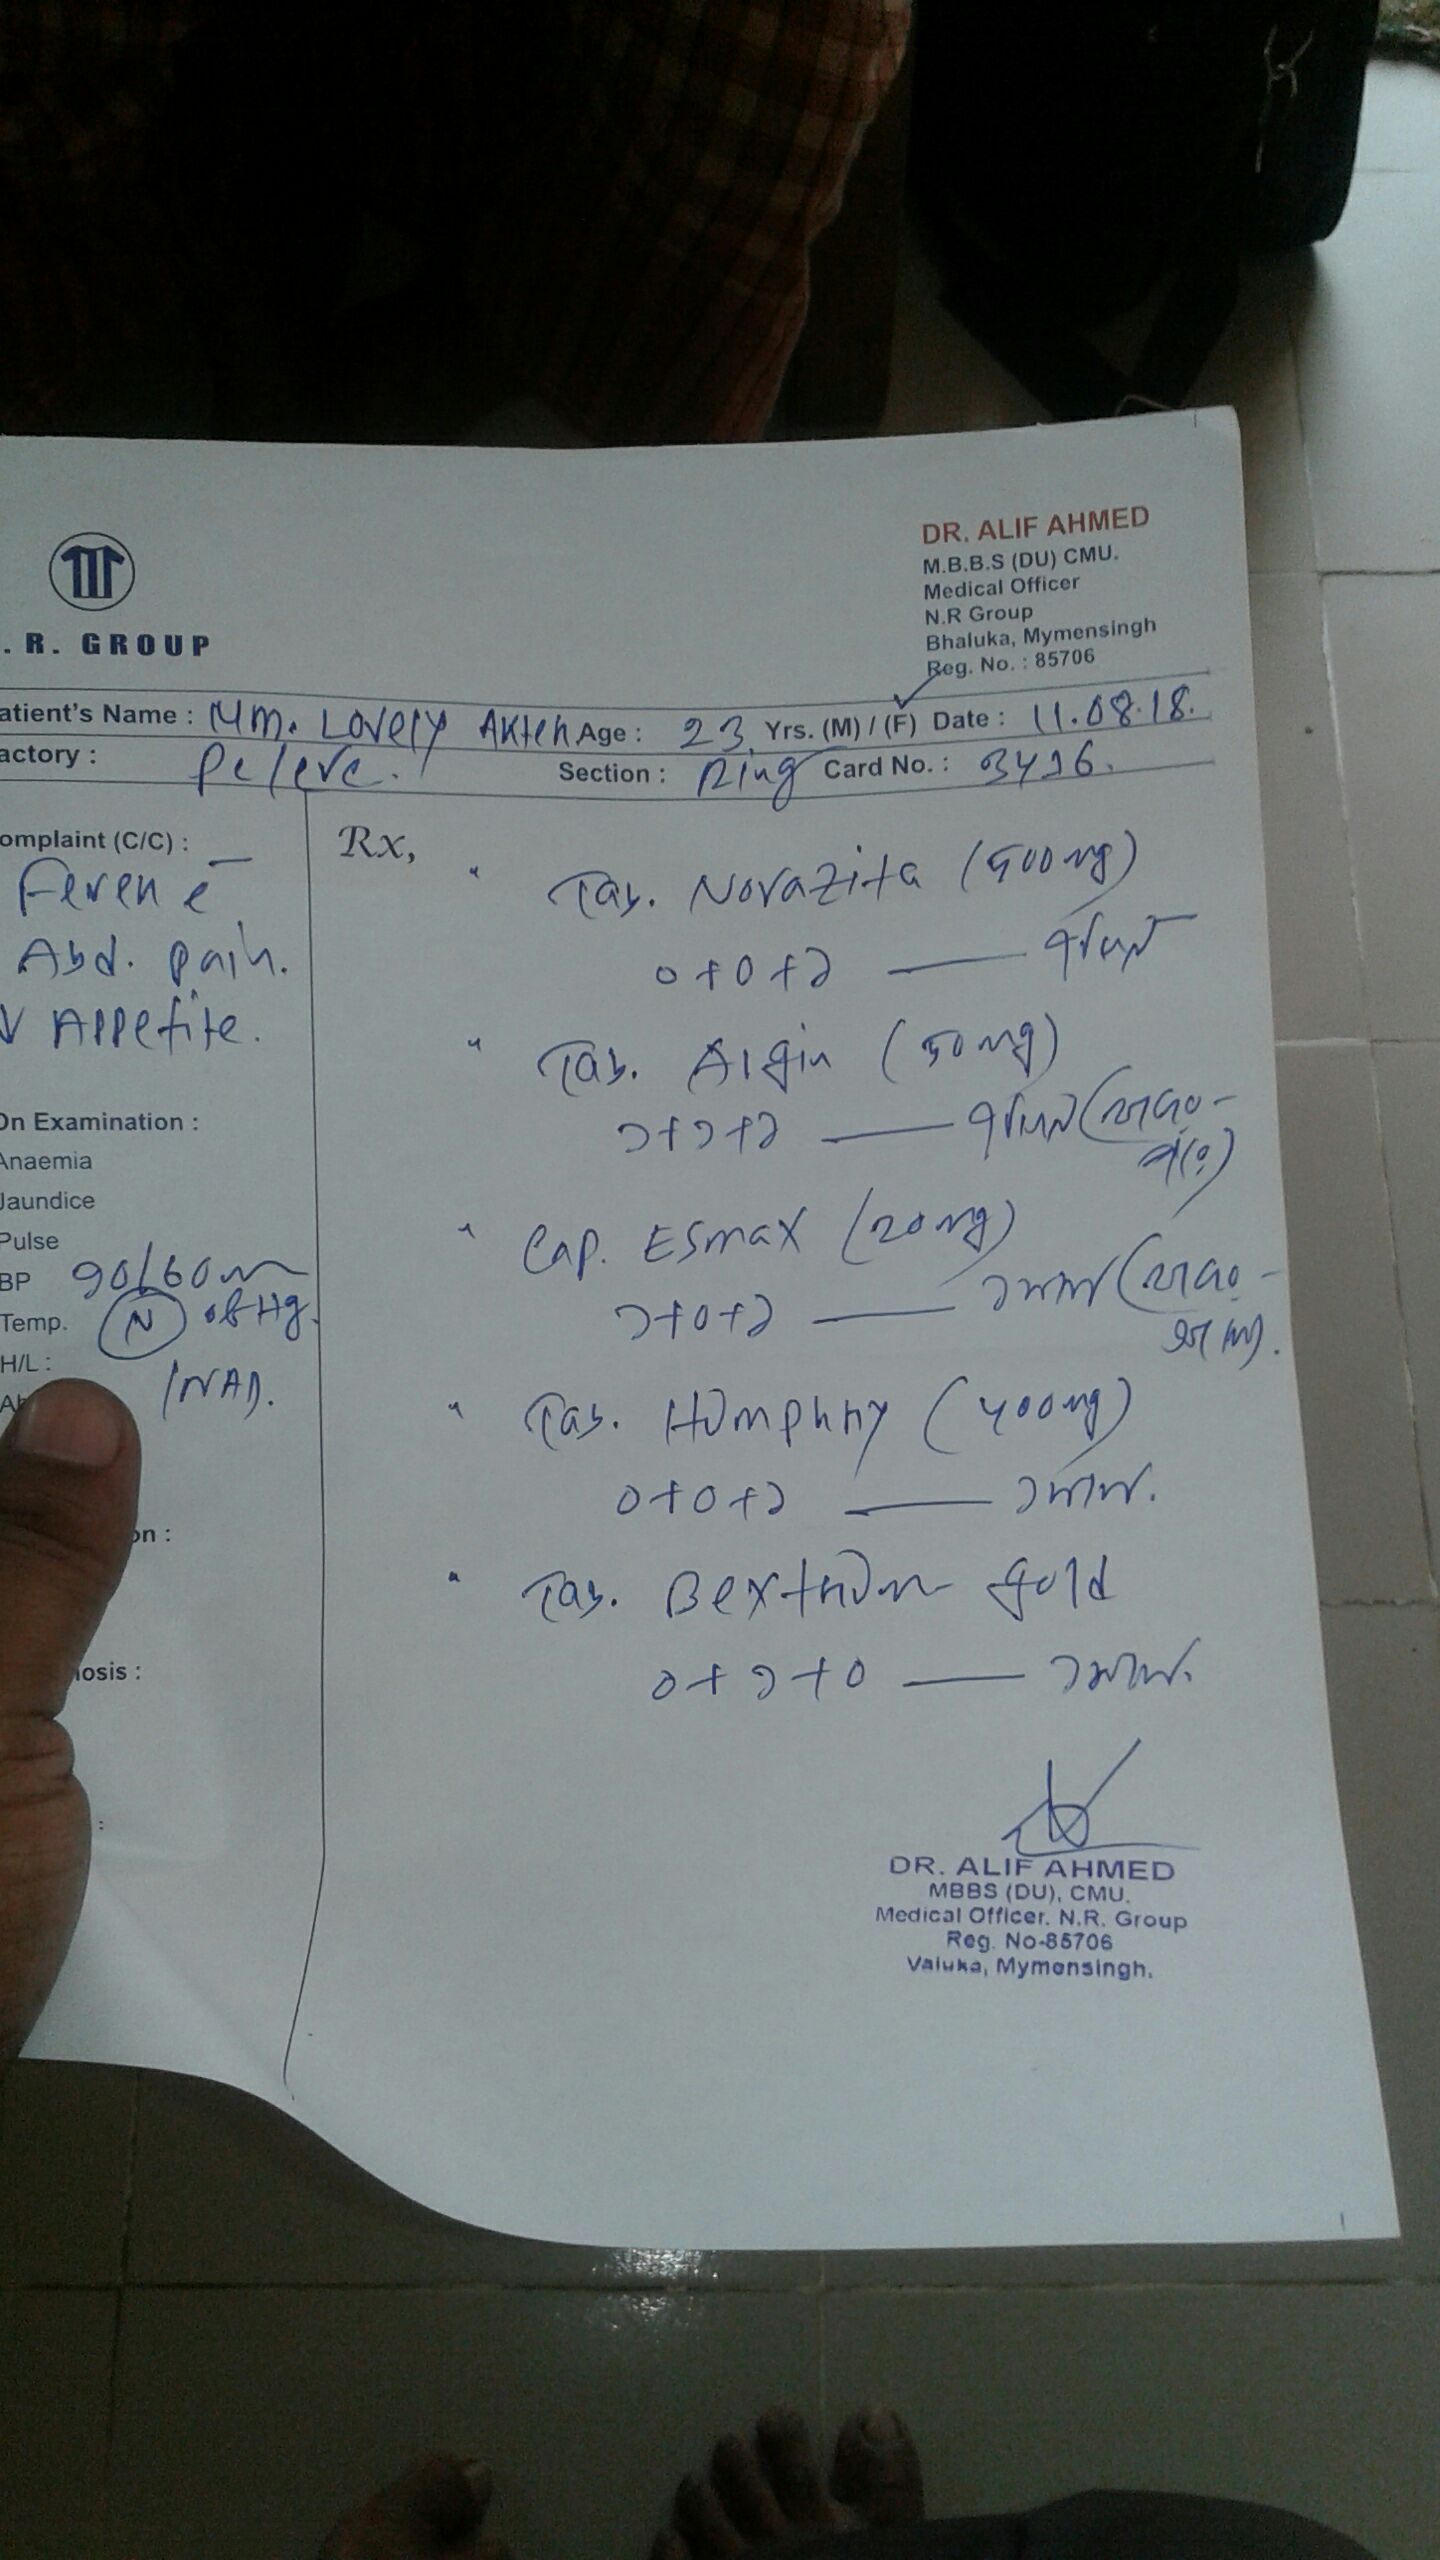 . R. GROUP
DR. ALIF AHMED
M.B.B.S (DU) CMU.
Medical Officer
N.R Group
Bhaluka, Mymensingh
Reg. No. : 85706
atient's Name : Mm. Lovely Akter Age : 23 Yrs. (M) / (F) Date : 11.08.18.
actory : Section : Ring Card No. :
omplaint (C/C) :
Fever c̄
Abd. pain.
↓ Appetite.
On Examination :
Anaemia
Jaundice
Pulse
BP 90/60 m
Temp. N of Hg.
H/L :
Ab
/NAD.
on :
nosis :
:
Rx,
Tab. Novazita (500mg)
০+০+১ —
Tab. Algin (50mg)
১+১+১ —
Cap. Esmax (20mg)
১+০+১ —
Tab. (400mg)
০+০+১ —
Tab. Bextrum Gold
০+১+০ —
DR. ALIF AHMED
MBBS (DU), CMU.
Medical Officer. N.R. Group
Reg. No-85706
Valuka, Mymensingh.